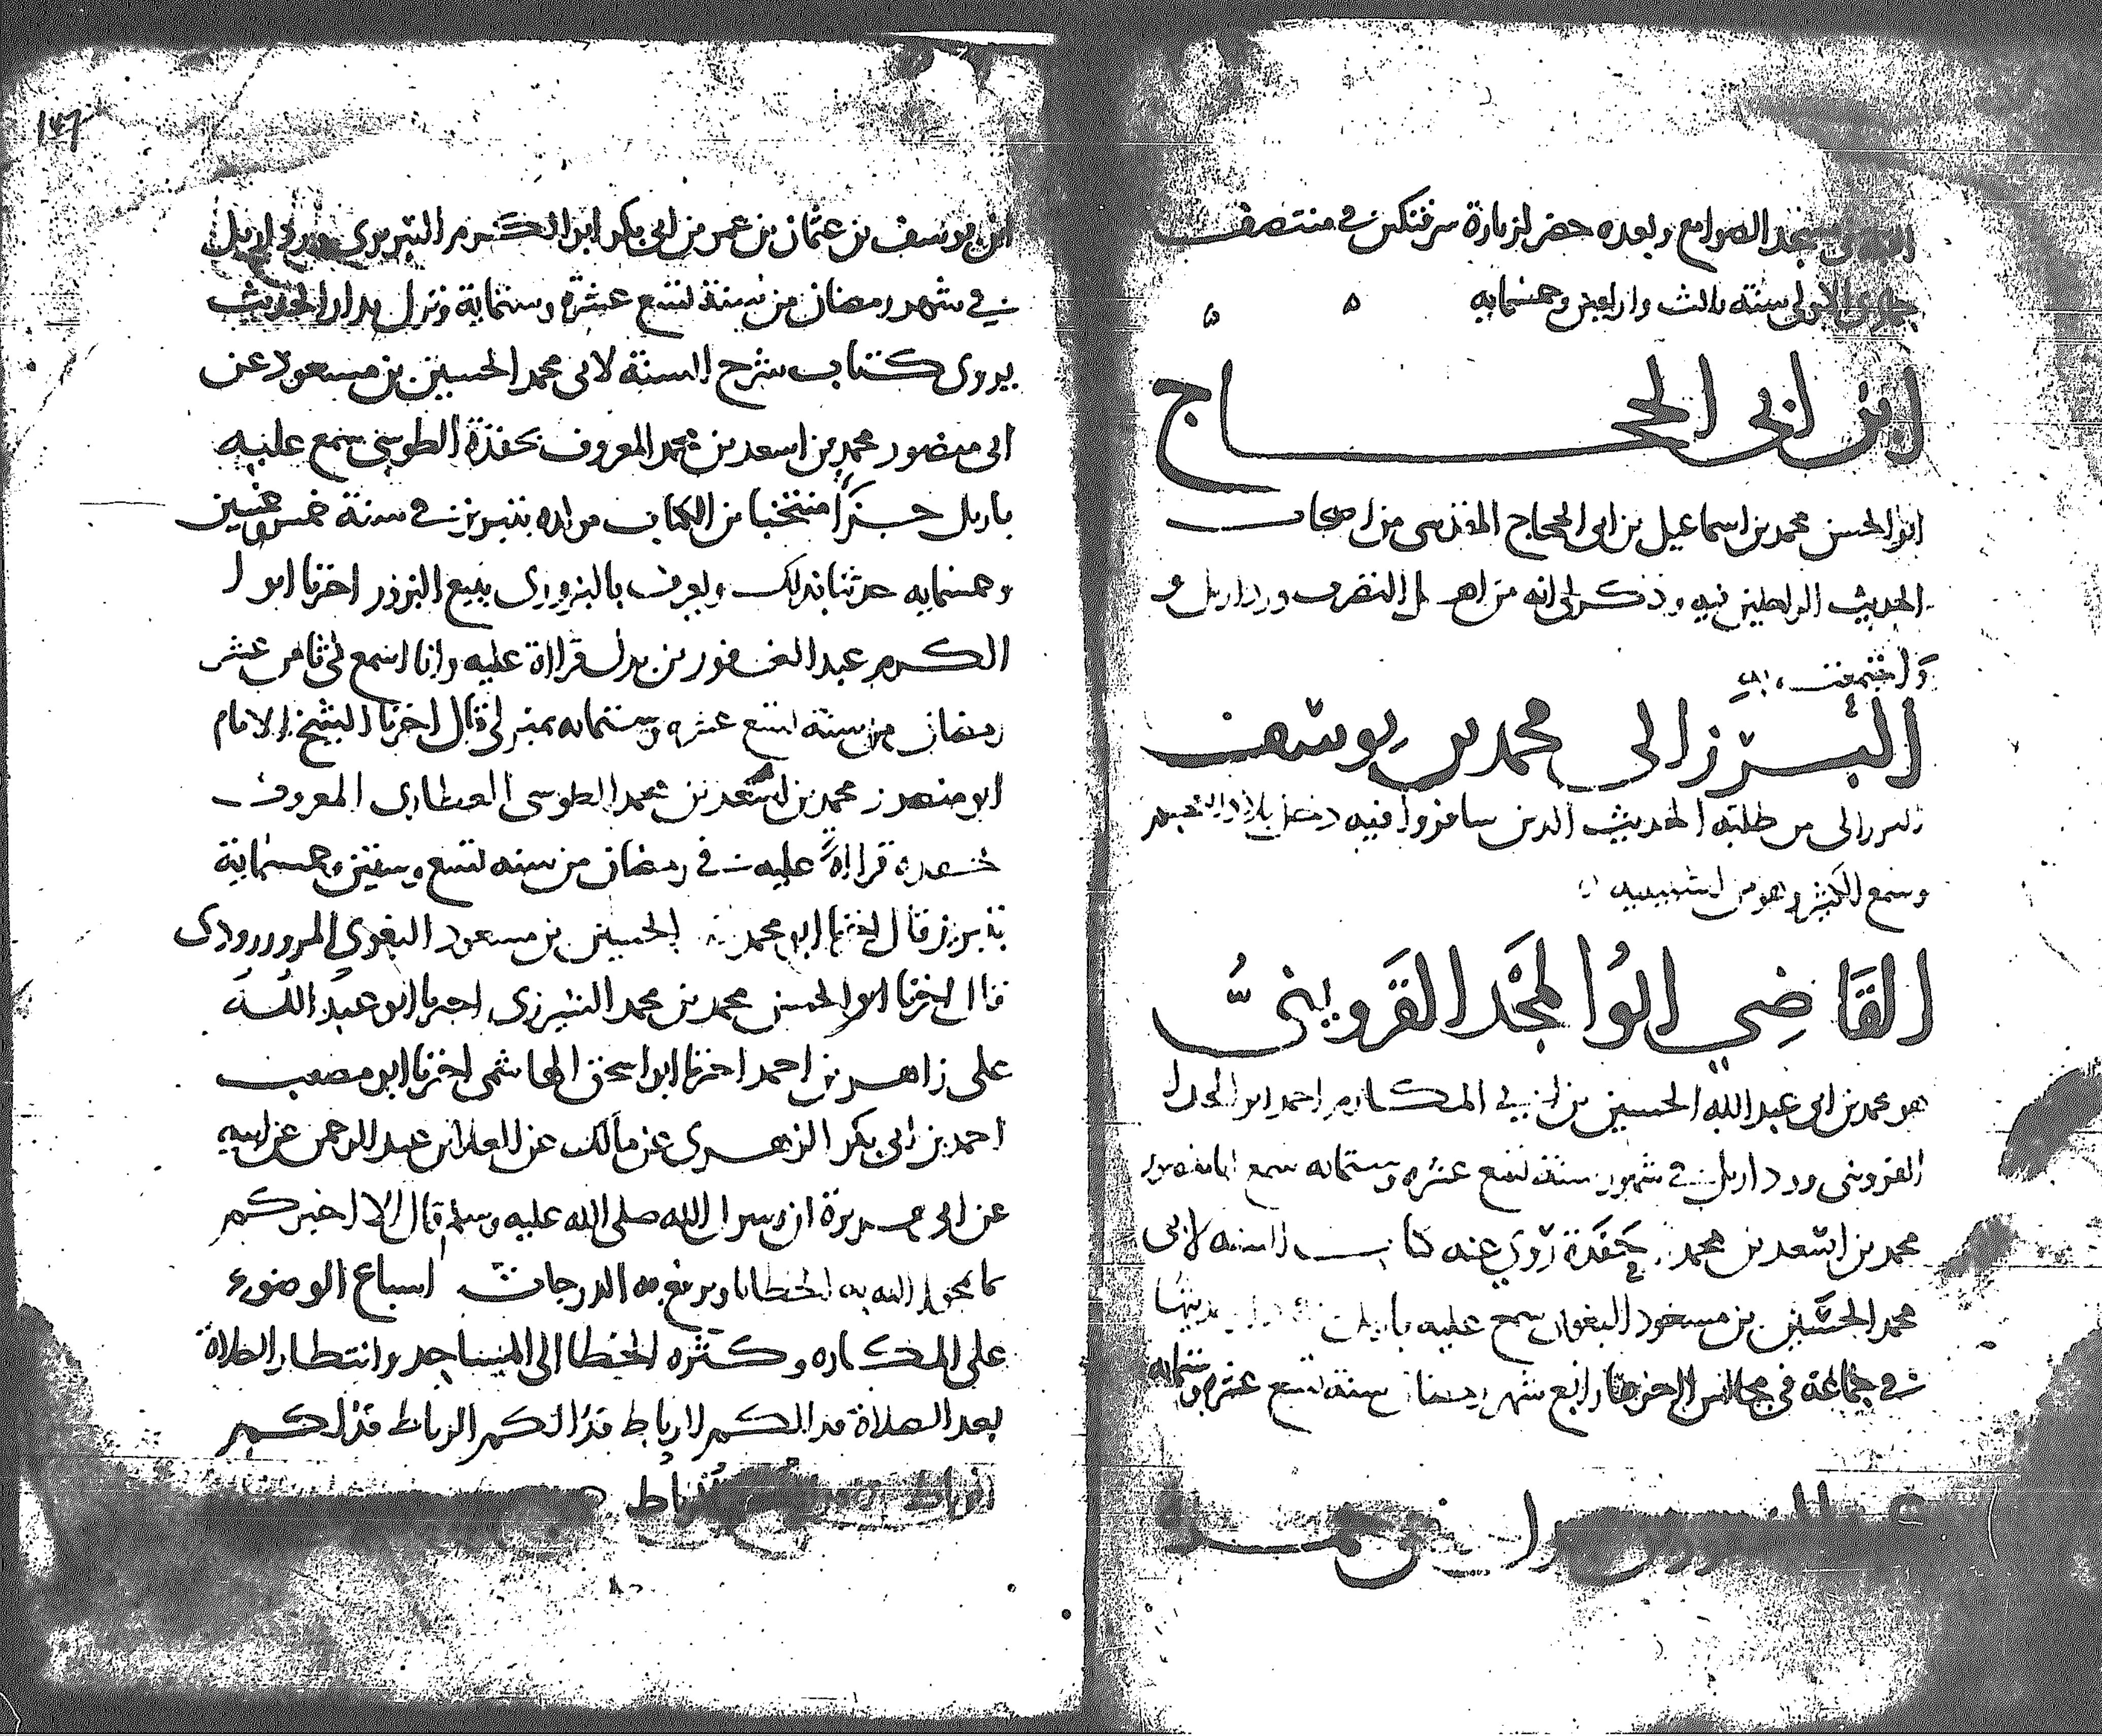 مسجد الصوامع وبعده حضر لزيارة سرفتكين في منتصف
جمادى الاولى سنة ثالث واربعين وخمسمايه
ابن ابي الحجاج
ابو الحسن محمد بن اسماعيل بن ابي الحجاج المقدسي من اصحاب
الحديث الراحلين فيه وذكر لي انه من اهل التصرف ورد اربل
البرزالي محمد بن يوسف
البرزالي من طلبة الحديث الذين سافروا فيه دخل بلاد العجم
وسمع الكثير وهو من اشبيليه
القاضي ابو المجد القزويني
هو محمد بن ابي عبد الله الحسين بن ابي المكارم احمد ابو المجد
القزويني ورد اربل في شهور سنة تسع عشره وستمايه سمع ابا منصور
محمد بن اسعد بن محمد حفدة روى عنه كتاب السنه لابي
محمد الحسين بن مسعود البغوي سمع عليه باربل
في جماعة في مجالس اخرها رابع شهر رمضان سنة تسع عشره وستمايه
١٤٦
ابن يوسف بن عثمان بن عمر بن ابي بكر ابو الكرم التبريزي ورد اربل
في شهر رمضان من سنة تسع عشرة وستماية ونزل بدار الحديث
يروي كتاب شرح السنة لابي محمد الحسين بن مسعود عن
ابي منصور محمد بن اسعد بن محمد المعروف بحفدة الطوسي سمع عليه
باربل جزءا منتخبا من الكتاب مولده بتبريز في سنة خمس وخمسين
وخمسمايه حدثنا بذلك ويعرف بالبزوري ببيع البزور اخبرنا ابو
الكرم عبد الغفور بن بدل قراءة عليه وانا اسمع في ثامن عشر
رمضان من سنة تسع عشره وستمايه بمنزلي قال اخبرنا الشيخ الامام
ابو منصور محمد بن اسعد بن محمد الطوسي العطاري المعروف
بحفدة قراءة عليه في رمضان من سنه تسع وستين وخمسماية
بتبريز قال اخبرنا ابو محمد الحسين بن مسعود البغوي المروروذي
قال اخبرنا ابو الحسن محمد بن محمد الشيرزي اخبرنا ابو عبد الله
علي زاهر بن احمد اخبرنا ابو اسحق الهاشمي اخبرنا ابو مصعب
احمد بن ابي بكر الزهري عن مالك عن العلا بن عبد الرحمن عن ابيه
عن ابي هريرة ان رسول الله صلى الله عليه وسلم قال الا اخبركم
بما يمحو الله به الخطايا ويرفع به الدرجات اسباغ الوضوء
على المكاره وكثره الخطا الى المساجد وانتظار الصلاة
بعد الصلاة فذالكم الرباط فذالكم الرباط فذلكم
الرباط